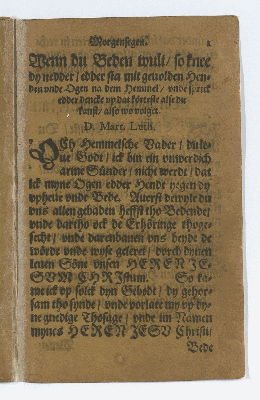 Morgensegen. 2
Wenn du Beden wult / so knee
dy nedder / edder sta mit geuolden Hen-
den vnde Ogen na dem Hemmel / vnde sprick
edder dencke vp dat körteste alse du
kanst / also wo volget.
D. Mart. Luth.
OCh Hemmelsche Vader / du le-
ue Godt / ick bin ein vnwerdich
arme Sünder / nicht werdt / dat
ick myne Ogen edder Hende yegen dy
vpheue vnde Bede. Auerst dewyle du
vns allen gebaden heffst tho Bedende /
vnde dartho ock de Erhöringe thoge-
secht / vnde darenbauen vns beyde de
wörde vnde wyse geleret / dörch dynen
leuen Söne vnsen HEREN JE-
SVM CHRJstum. So ka-
me ick vp solck dyn Gebodt / dy gehor-
sam tho synde / vnde vorlate my vp dy-
ne gnedige Thosage / vnde im Namen
mynes HEREN JESV Christi /
Bede